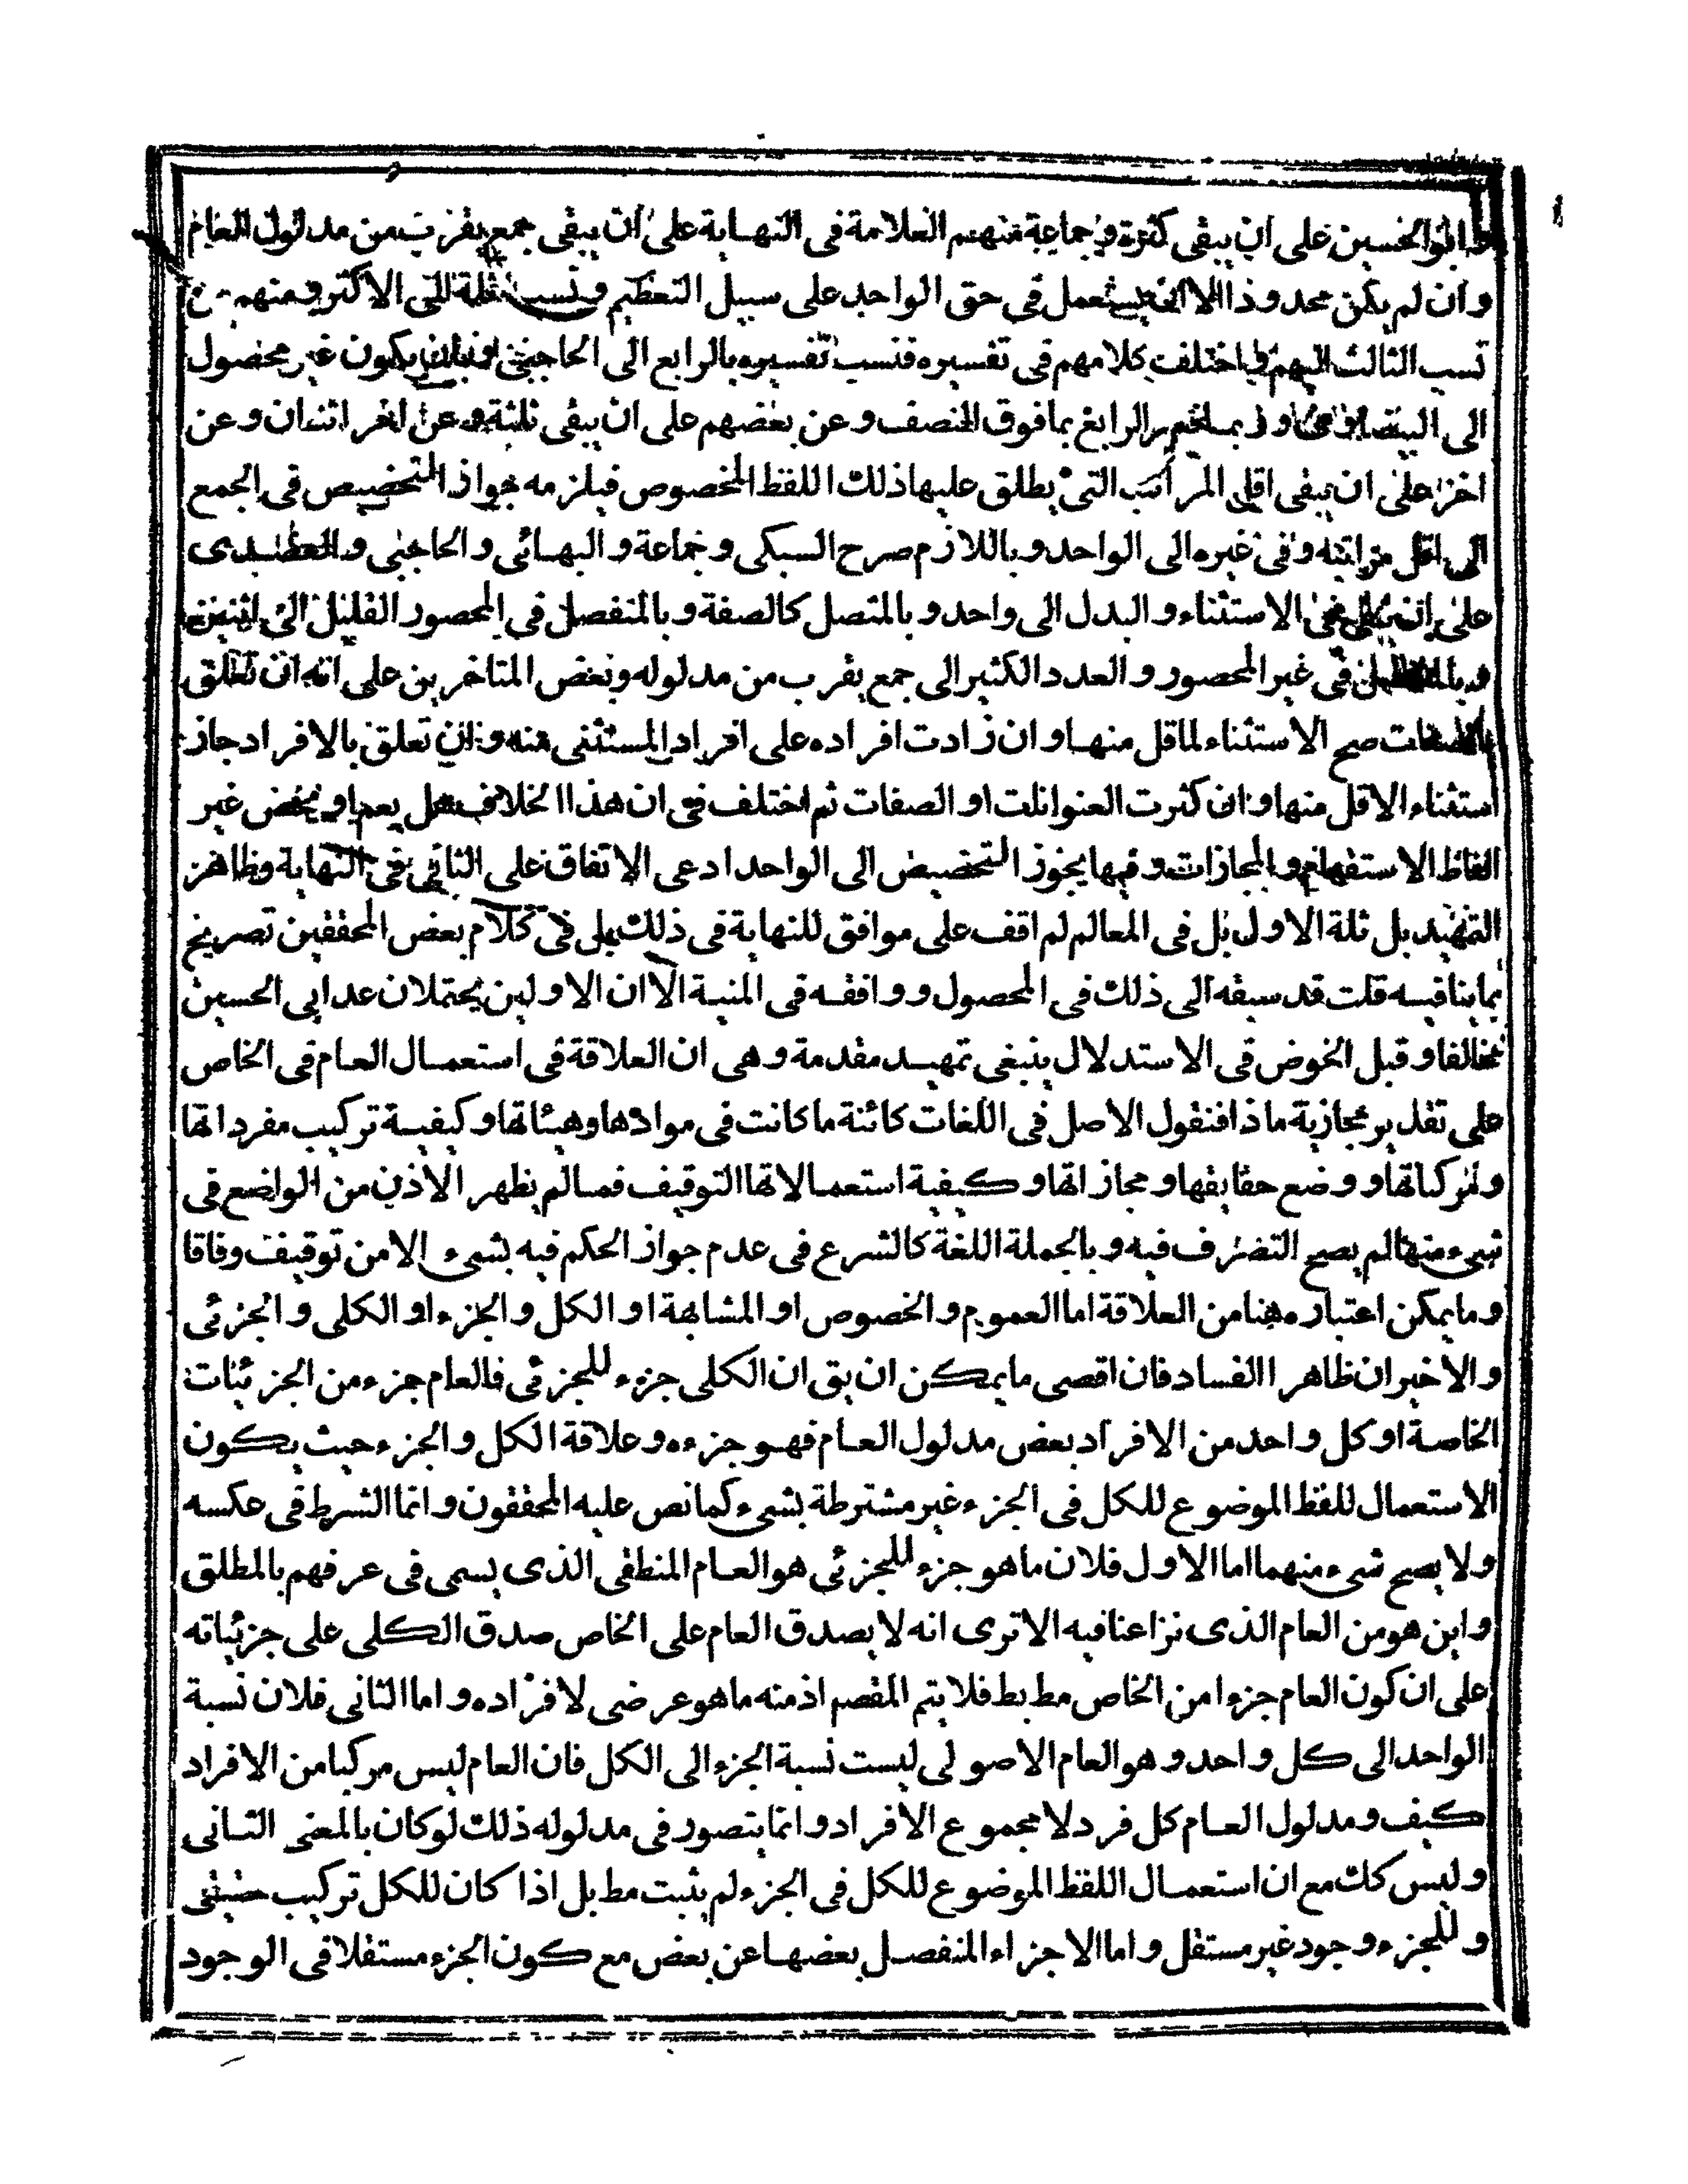 وابو الحسين على ان يبقى كثرة وجماعة منهم العلامة فى النهاية على ان يبقى جمع يقرب من مدلول العام
وان لم يكن محدودا الا ان يستعمل فى حق الواحد على سبيل التعظيم ونسب الى الاكثر ومنهم من
نسب الثالث اليهم واختلفت كلامهم فى تفسيره فنسب تفسيره بالرابع الى الحاجبى وبان يكون غير محصول
الى الرابع بما فوق النصف وعن بعضهم على ان يبقى ثلثة وعن اخر اثنان وعن
اخر على ان يبقى اقل المراتب التى يطلق عليها ذلك اللفظ المخصوص فيلزمه جواز التخصيص فى الجمع
الى اقل مراتبه وفى غيره الى الواحد وباللازم صرح السبكى وجماعة والبهائى والحاجبى والعضدى
على انه فى الاستثناء والبدل الى واحد وبالمتصل كالصفة وبالمنفصل فى المحصور القليل الى اثنين
فى غير المحصور والعدد الكثير الى جمع يقرب من مدلوله وبعض المتاخرين على انه ان تعلق
بالصفات صح الاستثناء لما قل منها وان زادت افراده على افراد المستثنى منه وان تعلق بالافراد جاز
استثناء الاقل منها وان كثرت العنوانات او الصفات ثم اختلف فى ان هذا الخلاف هل يعم او يخص غير
الفاظ الاستفهام والمجازات وفيها يجوز التخصيص الى الواحد ادعى الاتفاق على الثانى فى النهاية وظاهر
التمهيد بل ثلة الاول بل فى المعالم لم اقف على موافق للنهاية فى ذلك بلى فى كلام بعض المحققين تصريح
بما ينافيه قلت قد سبقه الى ذلك فى المحصول ووافقه فى المنية الا ان الاولين يحتملان عد ابى الحسين
مخالفا وقبل الخوض فى الاستدلال ينبغى تمهيد مقدمة وهى ان العلاقة فى استعمال العام فى الخاص
على تقدير مجازية ماذا فنقول الاصل فى اللغات كائنة ما كانت فى موادها وهيئاتها وكيفية تركيب مفرداتها
ومركباتها ووضع حقايقها ومجازاتها وكيفية استعمالاتها التوقيف فما لم يظهر الاذن من الواضع فى
شىء منها لم يصح التصرف فيه وبالجملة اللغة كالشرع فى عدم جواز الحكم فيه بشىء الا من توقيف وفاقا
وما يمكن اعتباره هنا من العلاقة اما العموم والخصوص او المشابهة او الكل والجزء او الكلى والجزئى
والاخيران ظاهرا الفساد فان اقصى ما يمكن ان يق ان الكلى جزء للجزئى فالعام جزء من الجزئيات
الخاصة او كل واحد من الافراد بعض مدلول العام فهو جزءه وعلاقة الكل والجزء حيث يكون
الاستعمال للفظ الموضوع للكل فى الجزء غير مشترطة بشىء كما نص عليه المحققون وانما الشرط فى عكسه
ولا يصح شىء منهما اما الاول فلان ما هو جزء للجزئى هو العام المنطقى الذى يسمى فى عرفهم بالمطلق
واين هو من العام الذى نزاعنا فيه الا ترى انه لا يصدق العام على الخاص صدق الكلى على جزئياته
على ان كون العام جزءا من الخاص مط بط فلا يتم المقصم اذ منه ما هو عرضى لافراده واما الثانى فلان نسبة
الواحد الى كل واحد وهو العام الاصولى ليست نسبة الجزء الى الكل فان العام ليس مركبا من الافراد
كيف ومدلول العام كل فرد لا مجموع الافراد وانما يتصور فى مدلوله ذلك لو كان بالمعنى الثانى
وليس كك مع ان استعمال اللفظ الموضوع للكل فى الجزء لم يثبت مط بل اذا كان للكل تركيب حقيقى
وللجزء وجود غير مستقل واما الاجزاء المنفصل بعضها عن بعض مع كون الجزء مستقلا فى الوجود